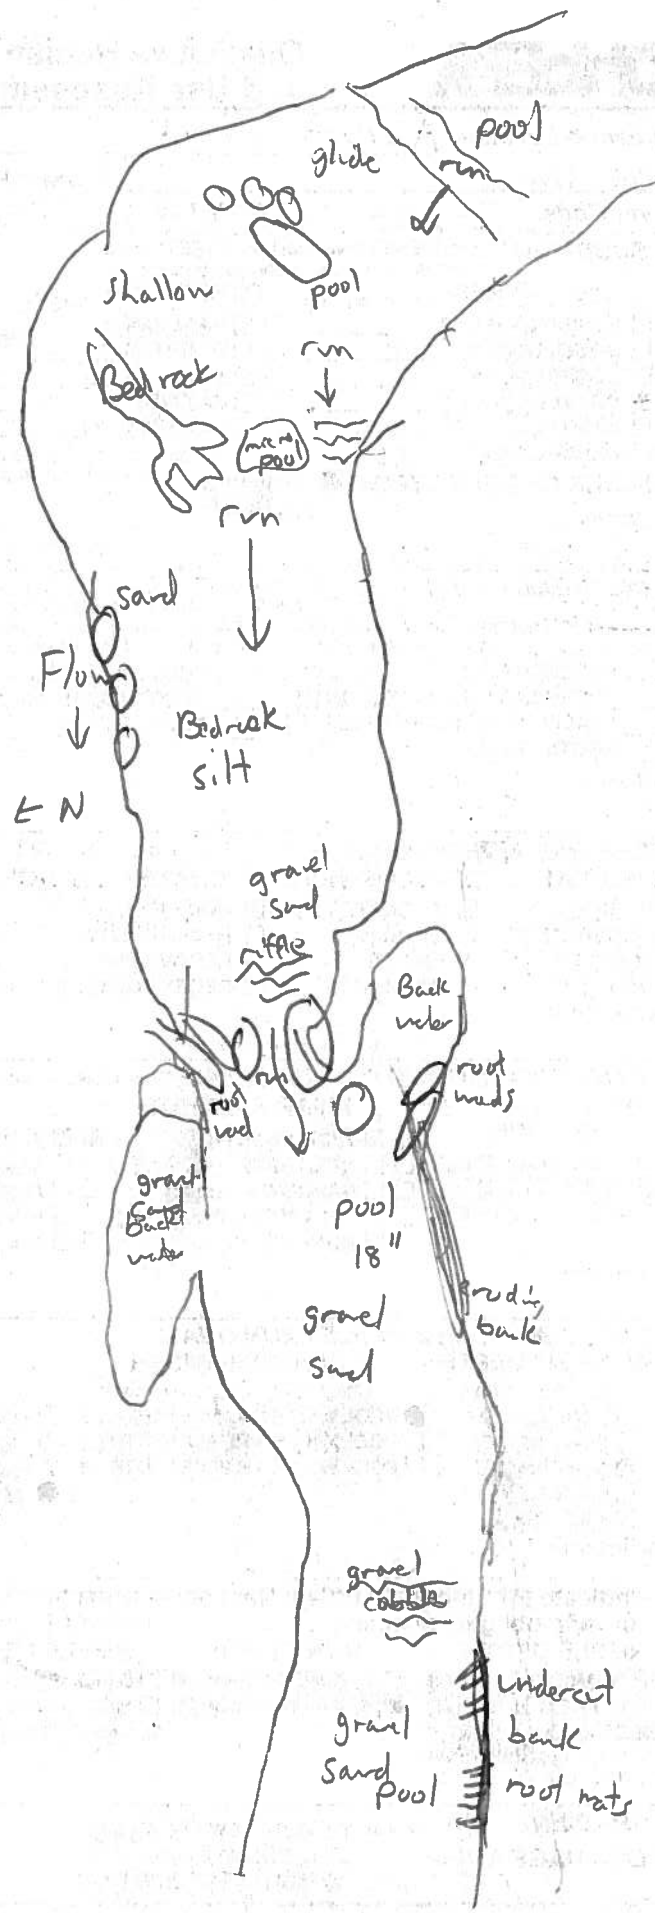 pool
glide
run
shallow
pool
run
Bedrock
micro
pool
run
sand
Flow
Bedrock
silt
← N
gravel
sand
riffle
Back
water
root
wads
run
root
wad
back
water
pool
18"
gravel
sand
bank
gravel
cobble
undercut
bank
gravel
sand
pool
root mats